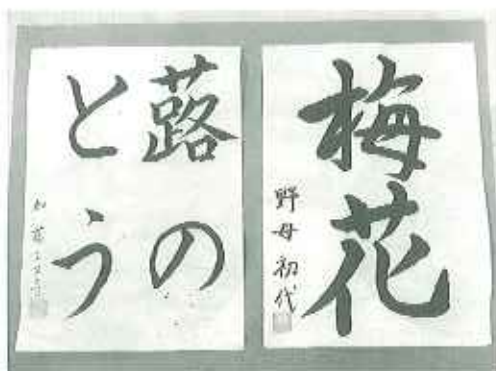 梅花
野母初代
蕗の
とう